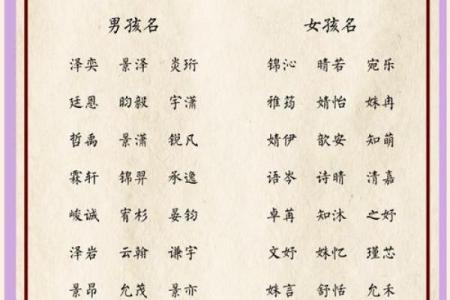 男孩名 女孩名
泽奕 景泽 炎珩 锦沁 晴若 宛乐
廷恩 昀毅 宇潇 雅筠 婧怡 姝冉
哲禹 景潇 锐凡 婧伊 歆安 知萌
霖轩 锦羿 承逸 语岑 诗晴 清嘉
峻诚 宥杉 晏钧 卓苒 知沐 之妤
泽岩 云翰 谦宇 文妤 姝忆 瑾芯
景昂 允茂 景亦 姝言 舒恬 允禾